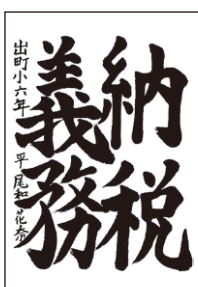 納税
義務
出町小六年 平尾和花奈